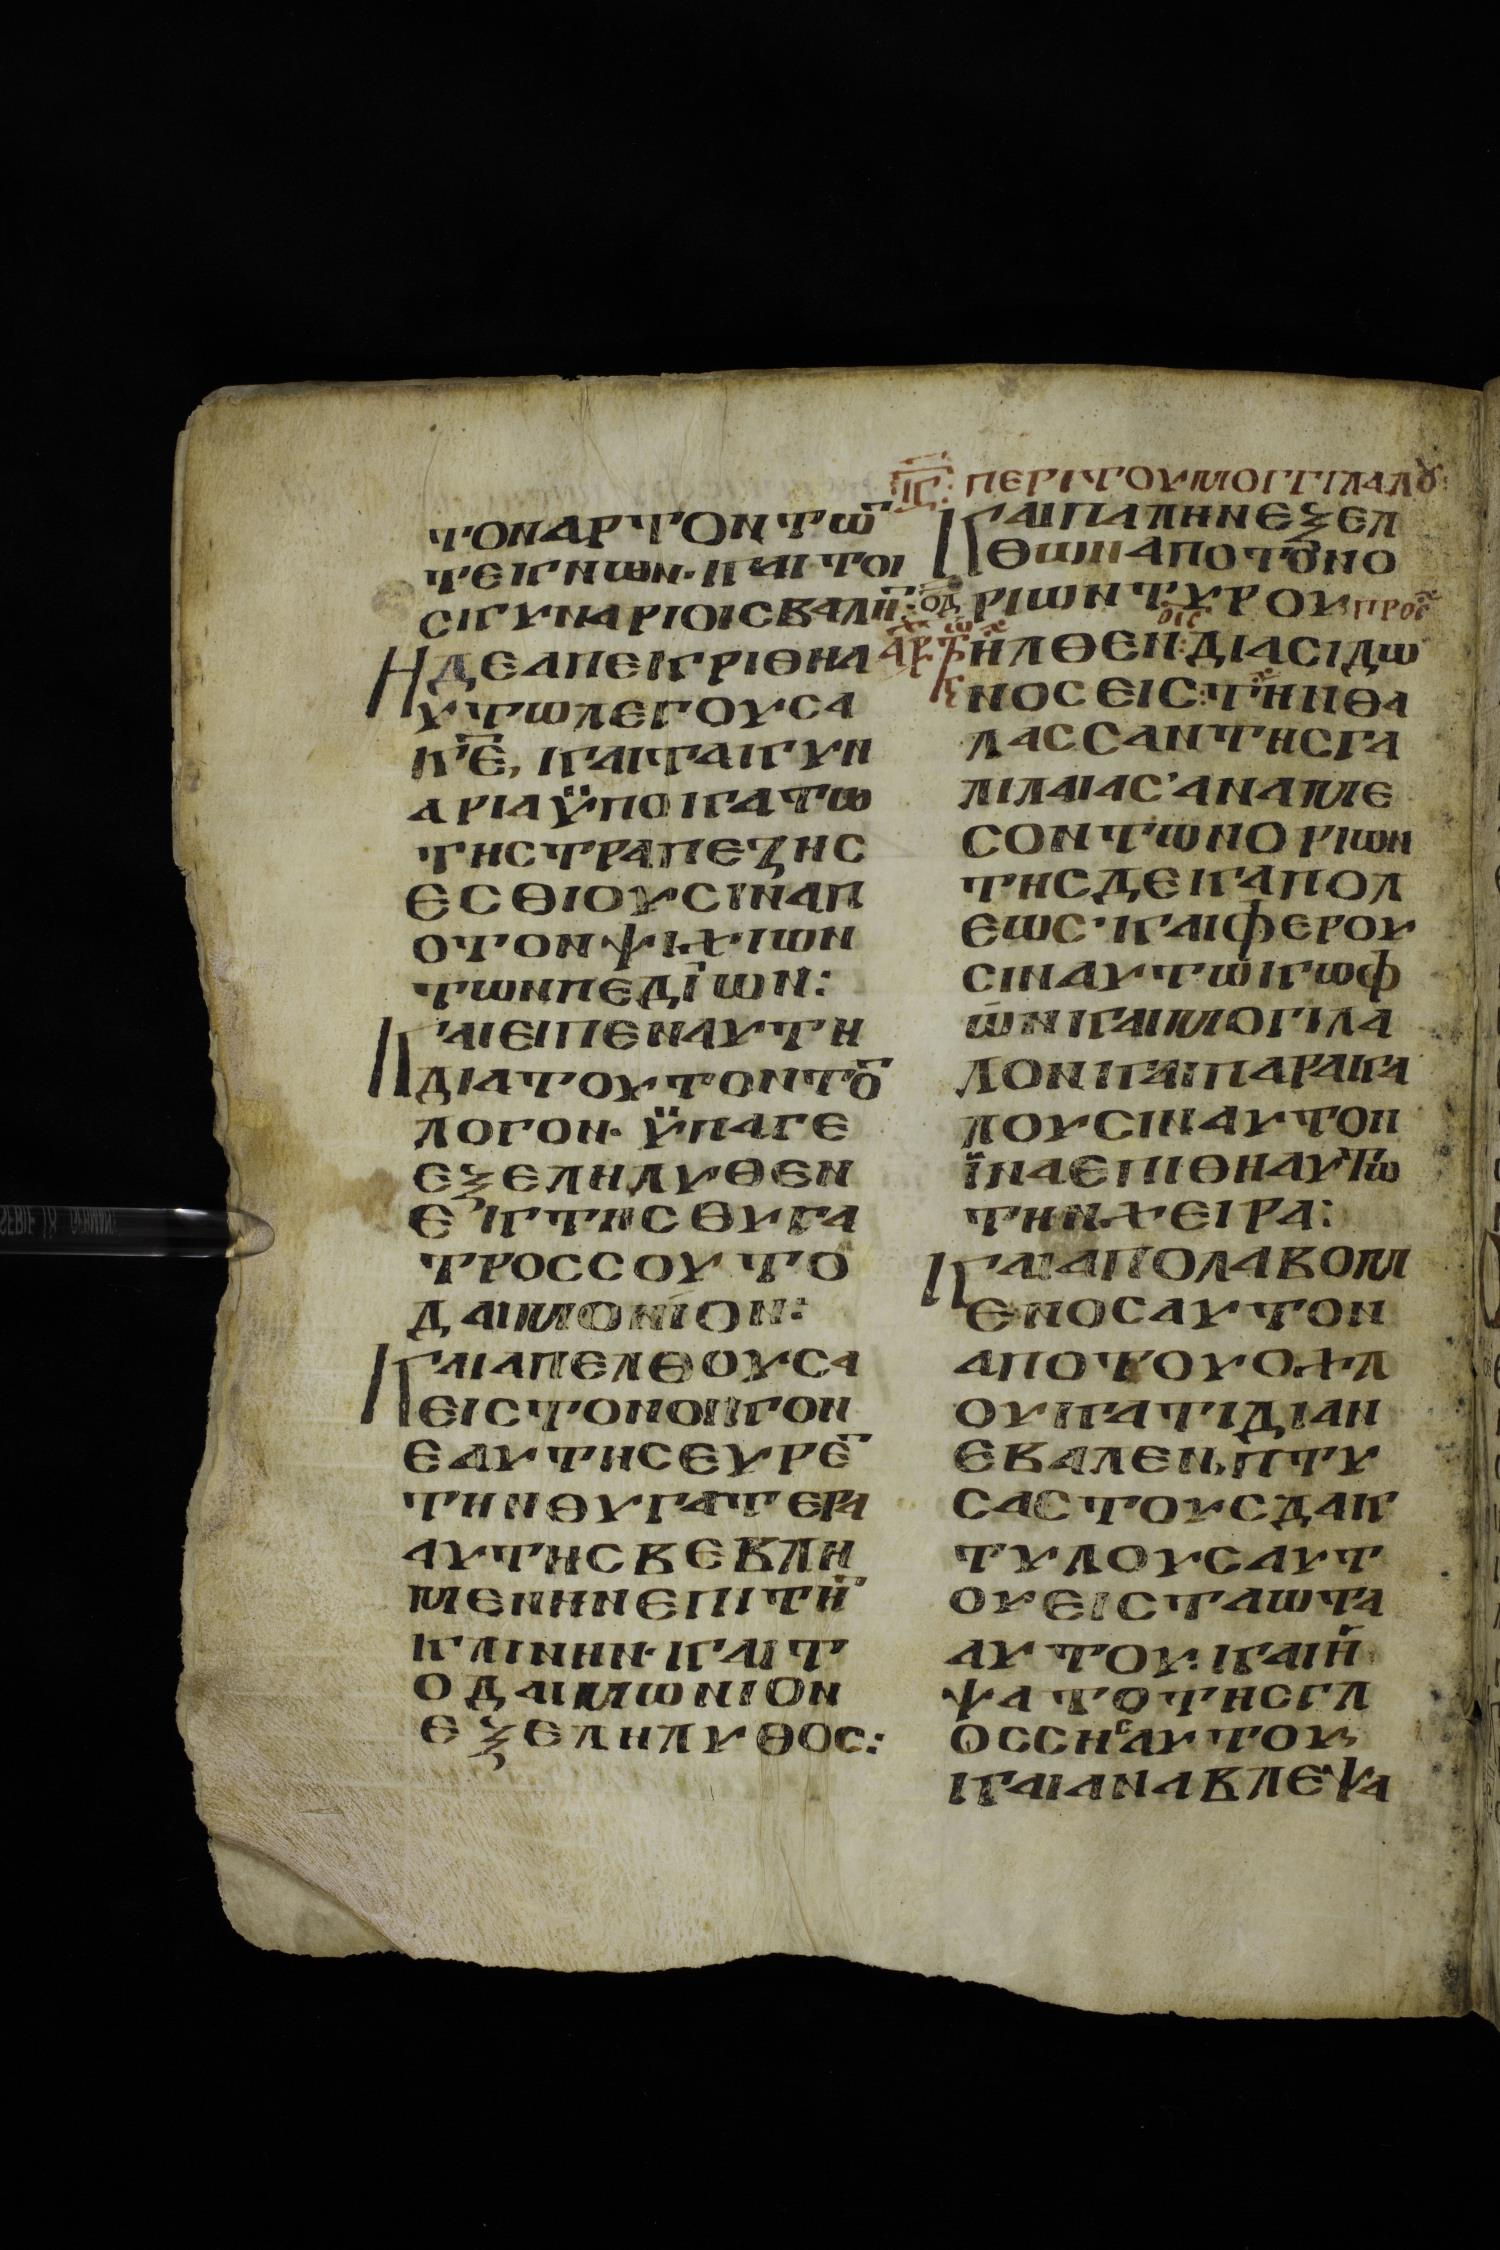 τοναρτοντω̅
τεκνων·καιτοι
σκυναριοισβαλη̅:
Ηδεαπεκριθηα
υτωλεγουσα
κ̅ε̅,καιτακυν
αριαϋποκατω
τηστραπεζησ
εσθιουσιναπ
οτονψιχιων
τωνπεδιων:
Καιειπεναυτη
διατουτοντο̅
λογον·ϋπαγε
εξεληλυθεν
εκτησθυγα
τροσσουτο
δαιμονιον:
Καιαπελθουσα
ειστονοικον
εαυτησευρε̅
τηνθυγατερα
αυτησβεβλη
μενηνεπιτη̅
κλινην·καιτ
οδαιμωνιον
εξεληλυθοσ:
περιτουμογγιλαλου:
Καιπαληνεξελ
θωναποτονο
ριωντυρου
ηλθεν:διασιδω
νοσεισ:τηνθα
λασσαντησγα
λιλαιασ'αναμε
σοντωνοριων
τησδεκαπολ
εωσ·καιφερου
σιναυτωκωφ
ωνκαιμογιλα
λονκαιπαρακα
λουσιναυτον
ϊναεπιθηαυτω
τηνχειρα:
Καιαπολαβομ
ενοσαυτον
αποτουοχλ
ουκατιδιαν
εβαλεν,πτυ
σαστουσδακ
τυλουσαυτ
ουειςταωτα
αυτου:καιη
ψατοτησγλ
οσσησαυτου,
καιαναβλεψα